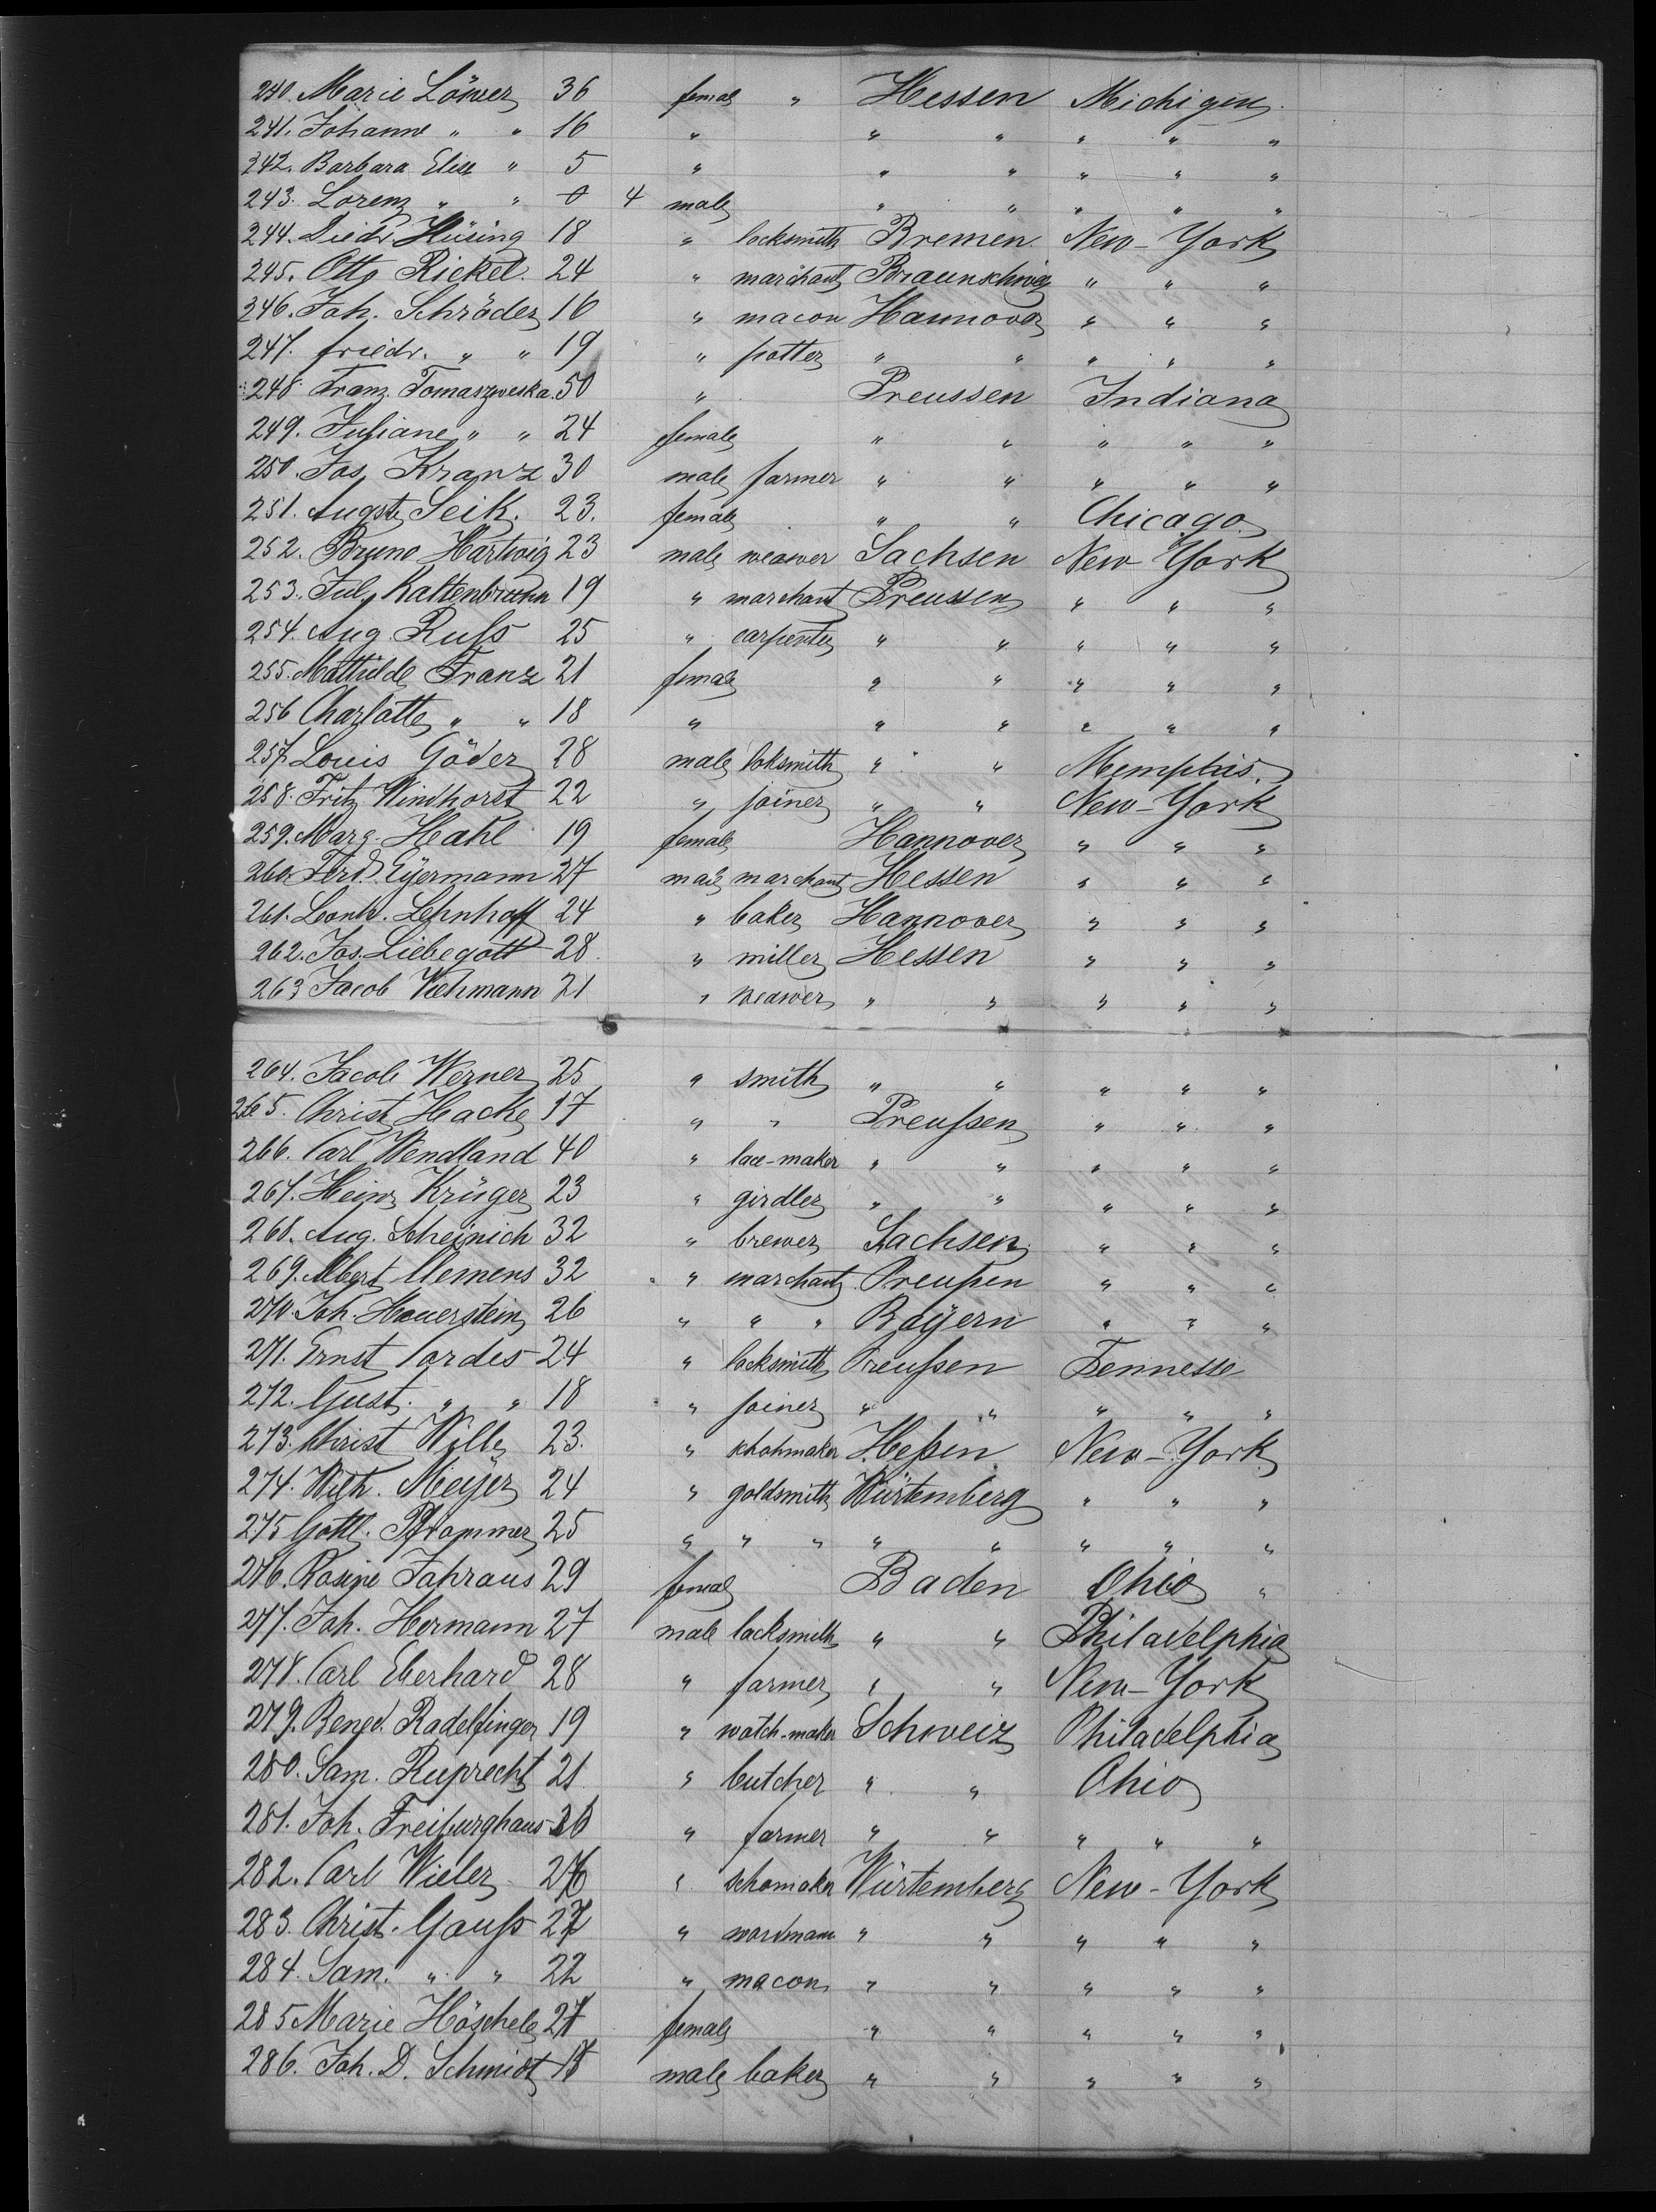 240. Marie Löwer 36 female " Hessen Michigan.
241. Johanne " " 16 " " " " " "
242. Barbara Elise " 5 " " " " " "
243. Lorenz " " 0 4 male " " " " "
244. Diedr. Hüsing 18 " locksmith Bremen New-York
245. Otto Rickel. 24 " marchant Braunschweig " " "
246. Joh. Schröder 16 " macon Hannover " " "
247. friedr. " " 19 " potter " " " " "
248. Franz Tomaszweska. 50 " Preussen Indiana
249. Juliane " " 24 female " " " " "
250. Jos. Kranz 30 male farmer " " " " "
251. Auguste Seik. 23. female " " Chicago
252. Bruno Hartwig 23 male weawer Sachsen New York
253. Jul. Kattenbrunn 19 " marchant Preussen " " "
254. Aug. Ruß 25 " carpenter " " " " "
255. Mathilde Franz 21 female " " " " "
256 Charlotte " " 18 " " " " " "
257. Louis Göder 28 male loksmith " " Memphis.
258. Fritz Windhorst 22 " joiner " " New-York
259. Marg. Hahl 19 female Hannover " " "
260. Ferd. Eÿermann 27 male marchant Hessen " " "
261. Leonh. Lehnhoff 24 " baker Hannover " " "
262. Jos. Liebegott 28. " miller Hessen " " "
263 Jacob Viehmann 21 " weawer " " " " "
264. Jacob Werner 25 " smith " " " " "
265. Christ. Hacke 17 " " Preußen " " "
266. Carl Wendland 40 " lace-maker " " " " "
267. Heinr. Krüger 23 " girdler " " " " "
268. Aug. Scheinich 32 " brewer Sachsen " " "
269. Albert Clemens 32 " marchant Preußen " " "
270. Joh. Hauerstein 26 " " " Bayern " " "
271. Ernst Cordes 24 " locksmith Preußen Tennesse
272. Gust. " " 18 " joiner " " " " "
273. Christ Wille 23. " schohmaker Heßen New-York
274. Wilh. Meÿer 24 " goldsmith Würtemberg " " "
275 Gottl. Pfrommer 25 " " " " " " " "
276. Rosine Fahraus 29 female Baden Ohio "
277. Joh. Hermann 27 male locksmith " " Philadelphia
278. Carl Eberhard 28 " farmer " " New-York
279. Bened. Radelfinger 19 " watch-maker Schweiz Philadelphia
280. Sam. Ruprecht 21 " butcher " " Ohio
281. Joh. Freiburghaus " farmer " " " " "
282. Carl Wieler 26 " schomaker Würtemberg New-York
283. Christ. Gauß 27 " " " " " "
284. Sam. " " 22 " macon " " " " "
285 Marie Höschele 27 female " " " " "
286. Joh. D. Schmidt male baker " " " " "